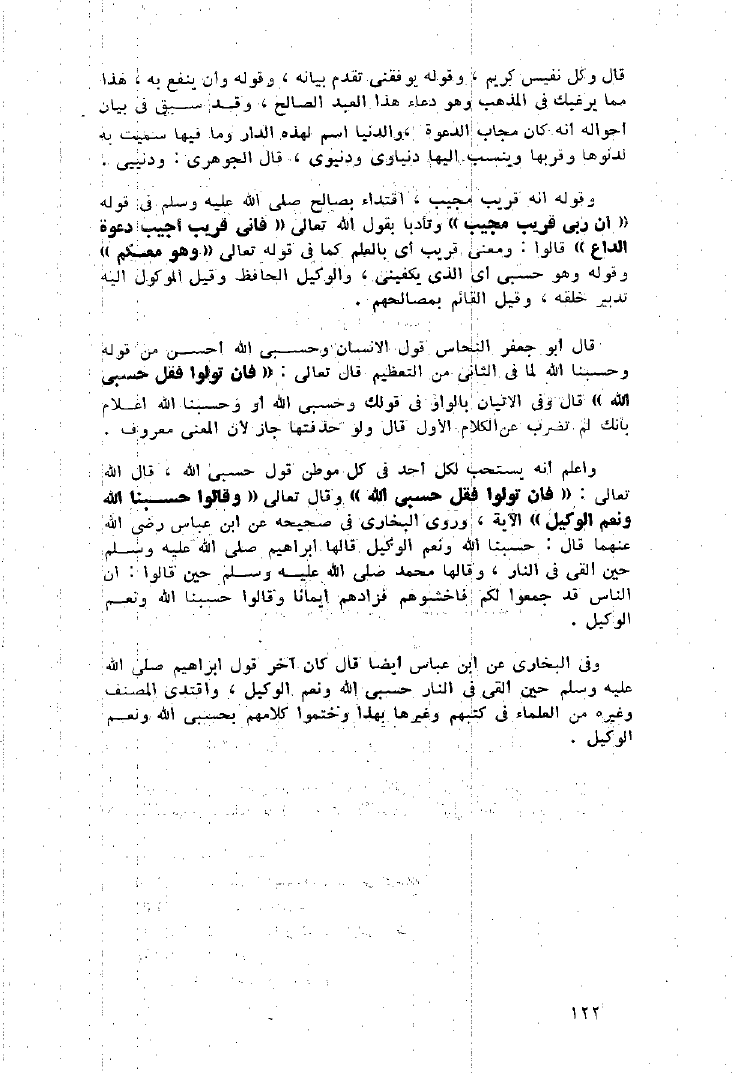 قال وكل نفيس كريم ، وقوله يوفقنى تقدم بيانه ، وقوله وان ينفع به ، هذا
مما يرغبك فى المذهب وهو دعاء هذا العبد الصالح ، وقد سبق فى بيان
أحواله أنه كان مجاب الدعوة ، والدنيا اسم لهذه الدار وما فيها سميت به
لدنوها وقربها وينسب اليها دنياوى ودنيوى ، قال الجوهرى : ودنيى .
وقوله انه قريب مجيب ، اقتداء بصالح صلى الله عليه وسلم فى قوله
« ان ربى قريب مجيب » وتأدبا بقول الله تعالى « فانى قريب أجيب دعوة
الداع » قالوا : ومعنى قريب أى بالعلم كما فى قوله تعالى « وهو معكم »
وقوله وهو حسبى أى الذى يكفينى ، والوكيل الحافظ وقيل الموكول اليه
تدبير خلقه ، وقيل القائم بمصالحهم .
قال أبو جعفر النحاس قول الانسان وحسبى الله أحسن من قوله
وحسبنا الله لما فى الثانى من التعظيم قال تعالى : « فان تولوا فقل حسبى
الله » قال وفى الاتيان بالواو فى قولك وحسبى الله أو وحسبنا الله اعلام
بأنك لم تضرب عن الكلام الأول قال ولو حذفتها جاز لأن المعنى معروف .
واعلم أنه يستحب لكل أحد فى كل موطن قول حسبى الله ، قال الله
تعالى : « فان تولوا فقل حسبى الله » وقال تعالى « وقالوا حسبنا الله
ونعم الوكيل » الآية ، وروى البخارى فى صحيحه عن ابن عباس رضى الله
عنهما قال : حسبنا الله ونعم الوكيل قالها ابراهيم صلى الله عليه وسلم
حين القى فى النار ، وقالها محمد صلى الله عليه وسلم حين قالوا : ان
الناس قد جمعوا لكم فاخشوهم فزادهم ايمانا وقالوا حسبنا الله ونعم
الوكيل .
وفى البخارى عن ابن عباس أيضا قال كان آخر قول ابراهيم صلى الله
عليه وسلم حين القى فى النار حسبى الله ونعم الوكيل ، واقتدى المصنف
وغيره من العلماء فى كتبهم وغيرها بهذا وختموا كلامهم بحسبى الله ونعم
الوكيل .
١٢٢